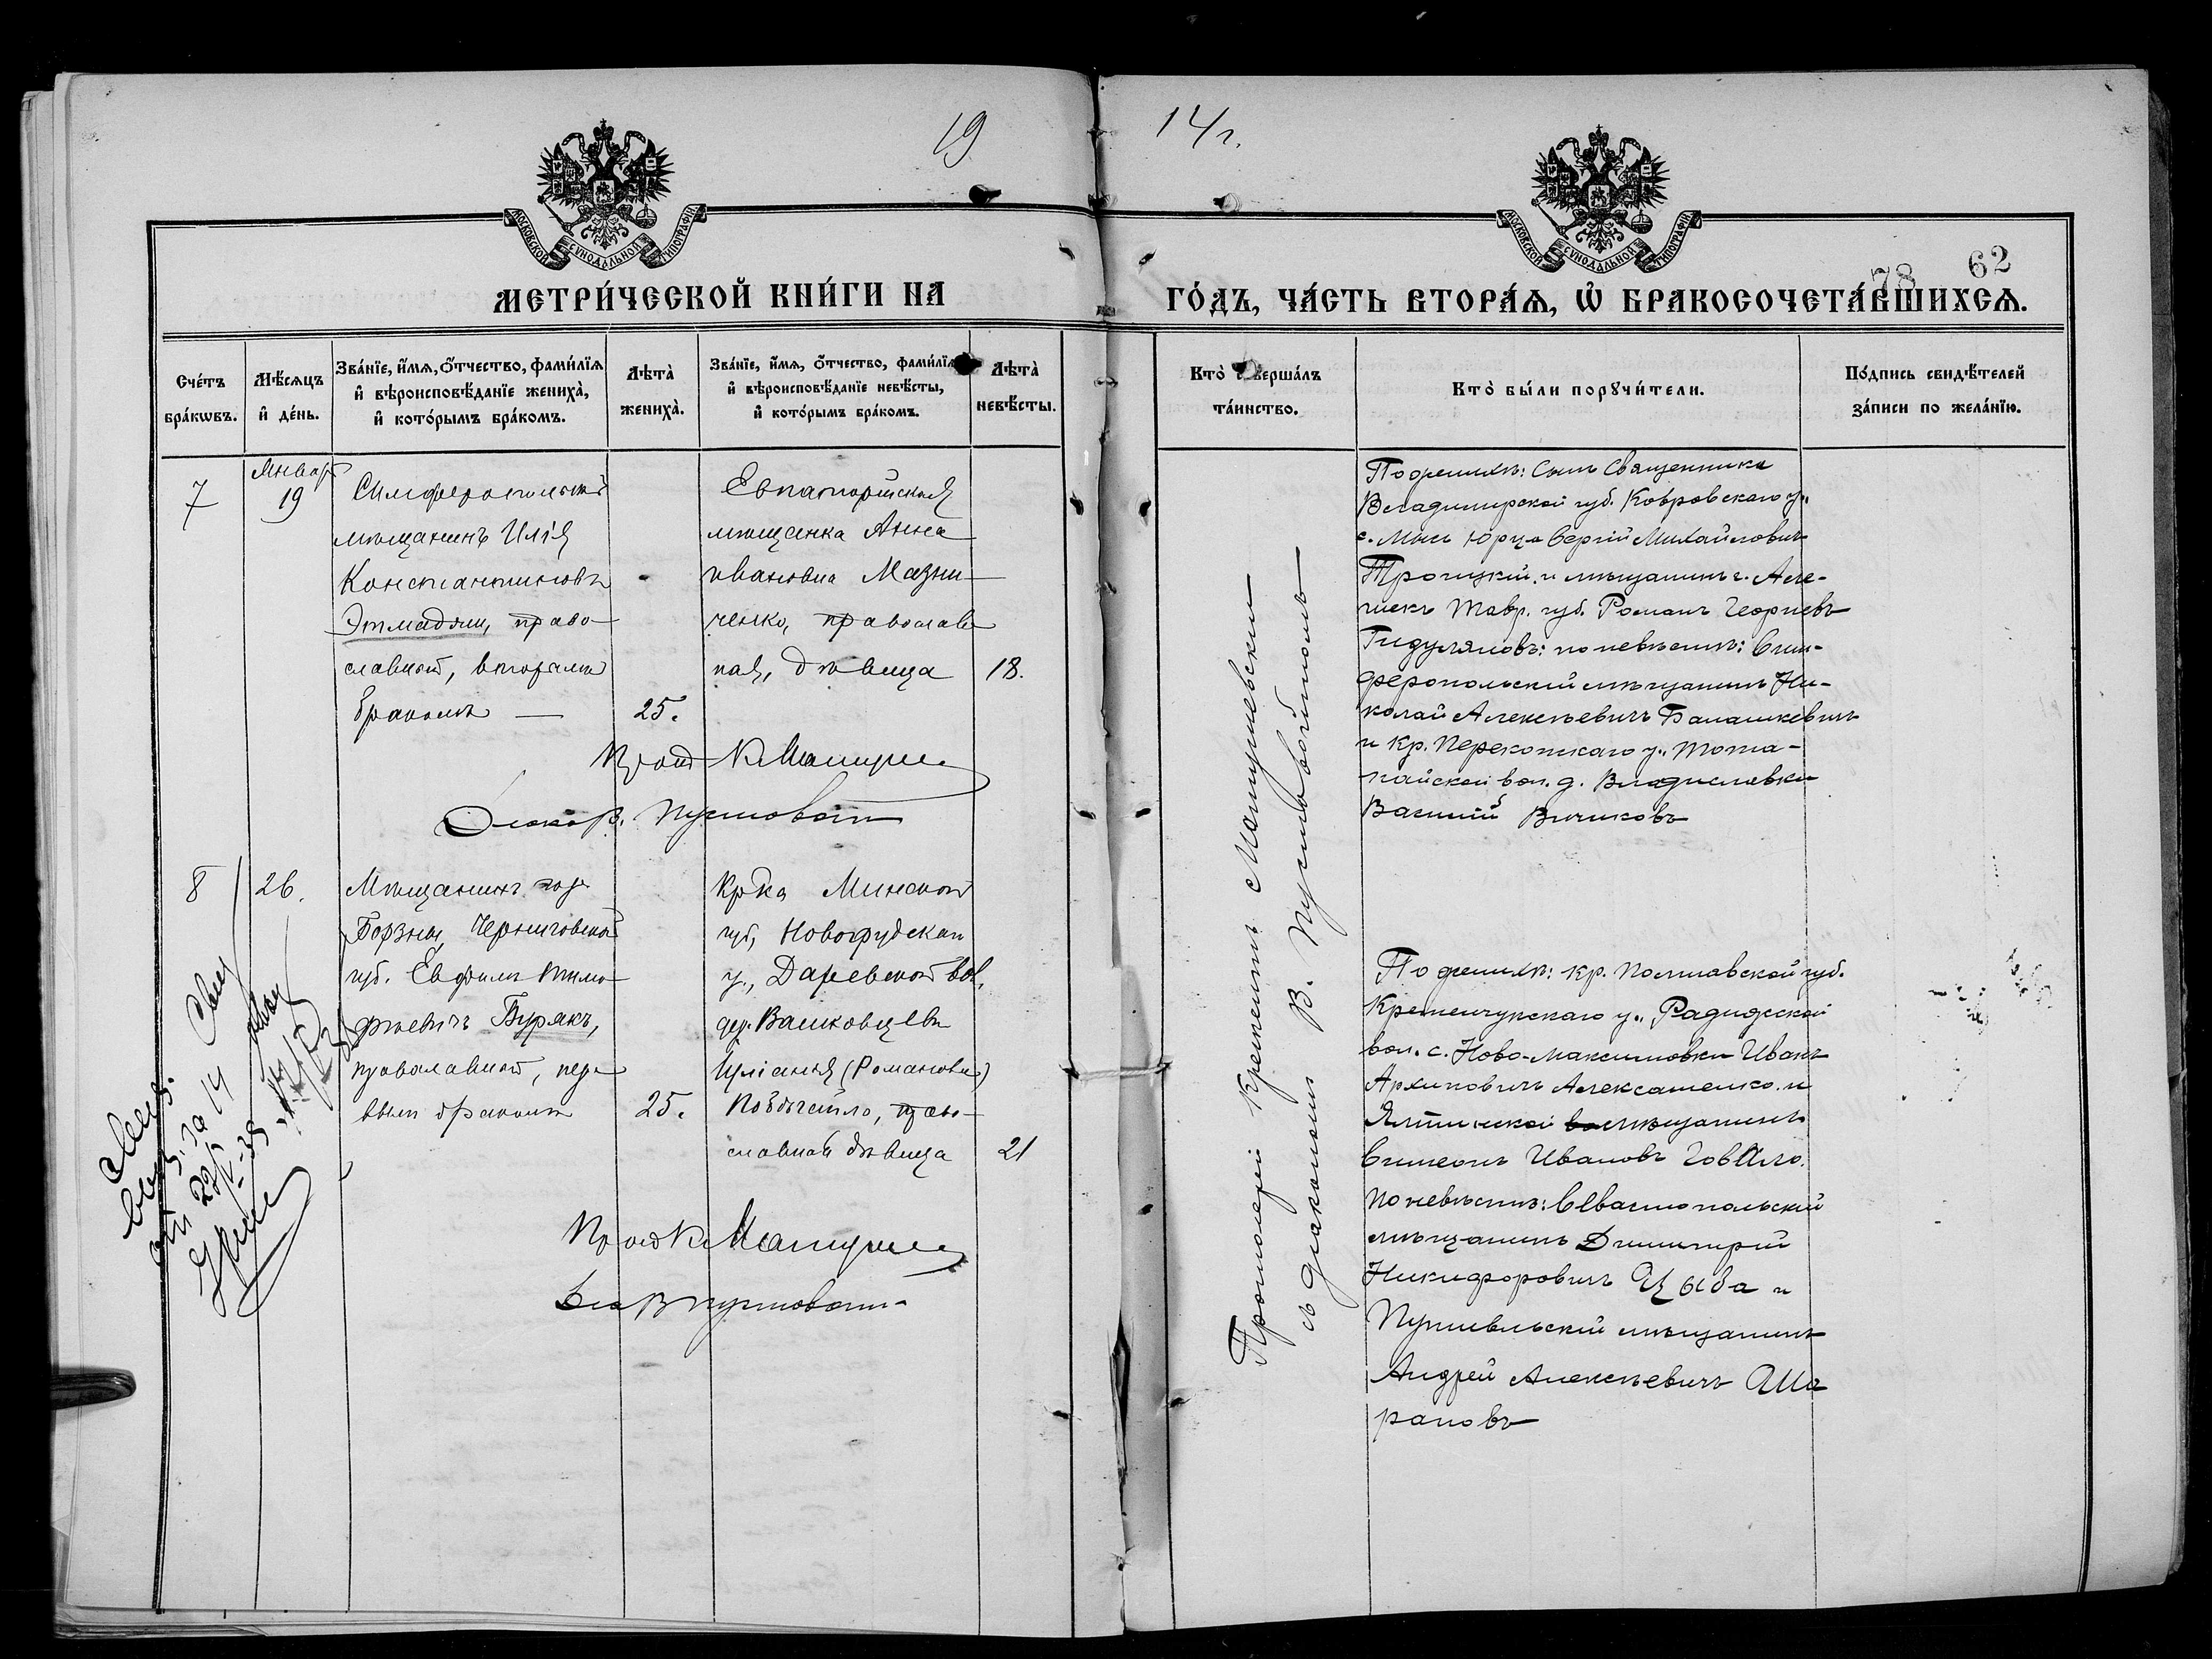 19
14 г.
МОСКОВСКОЙ СѴНОДАЛЬНОЙ ТИПОГРАФІИ
МОСКОВСКОЙ СѴНОДАЛЬНОЙ ТИПОГРАФІИ
78
62
МЕТРИ́ЧЕСКОЙ КНИ́ГИ НА
ГО́ДЪ, ЧА́СТЬ ВТОРА́Ѧ, Ѡ҆ БРАКОСОЧЕТА́ВШИХСѦ.
Сче́тъ
бра́кѡвъ.
Мѣ́сѧцъ
и҆ де́нь.
Зва́нїе, и҆́мѧ, ѻ҆́тчество, фами́лїѧ
и҆ вѣроисповѣ́данїе жениха̀,
и҆ кото́рымъ бра́комъ.
Лѣ́та
жениха̀.
Зва́нїе, и҆́мѧ, ѻ҆́тчество, фами́лїѧ
и҆ вѣроисповѣ́данїе невѣ́сты,
и҆ кото́рымъ бра́комъ.
Лѣ́та
невѣ́сты.
Кто̀ соверша́лъ
та́инство.
Кто̀ бы́ли порꙋчи́тели.
По́дпись свидѣ́телей
за́писи по жела́нїю.
7
Январ
19
Симферопольскій
мѣщанинъ Илія
Константиновъ
Этмадзи, право-
славной, вторымъ
бракомъ
25.
Евпаторійская
мѣщанка Анна
Ивановна Мазни-
ченко, православ
ная, дѣвица
18.
Прот К Мацуше
Діакъ В. Пустовойт
По женихѣ: Сынъ Священника
Владимирской губ. Ковровскаго у.,
с. Мысъ Юрца Сергій Михайловичъ
Троицкій и мѣщанинъ г. Але-
шекъ Тавр. губ. Романъ Георгіевъ
Гидуляновъ: по невѣстѣ: Сим-
феропольскій мѣщанинъ Ни-
колай Алексѣевичъ Балашкевичъ
и кр. Перекопскаго у.,
вол. д. Владиславки
Василій
Протоіерей Климентъ
и діаконъ В. Пустовойтовъ
8
26.
Мѣщанинъ гор
Борзны Черниговской
губ. Евфимъ Тимо
феевичъ Бурякъ,
православной, пер
вымъ бракомъ
25.
Кр-ка Минской
губ, Новогрудскаго
у., Даревской вол.
дер. Вашковцевъ
Иуліанія (Романовна)
право-
славная дѣвица
21
Прот К Мацуше
Діа В Пустовойт
По женихѣ: кр. Полтавской губ.
Кременчугскаго у.,
вол. с. Ново-Максимовки Иванъ
Архиповичъ Алексашенко и
Ялтинской мѣщанинъ
Симеонъ Ивановъ
По невѣстѣ: Севастопольскій
мѣщанинъ Димитрій
Никифоровичъ Цыба и
Путивльскій мѣщанинъ
Андрей Алексѣевичъ Ша
раповъ
за 14